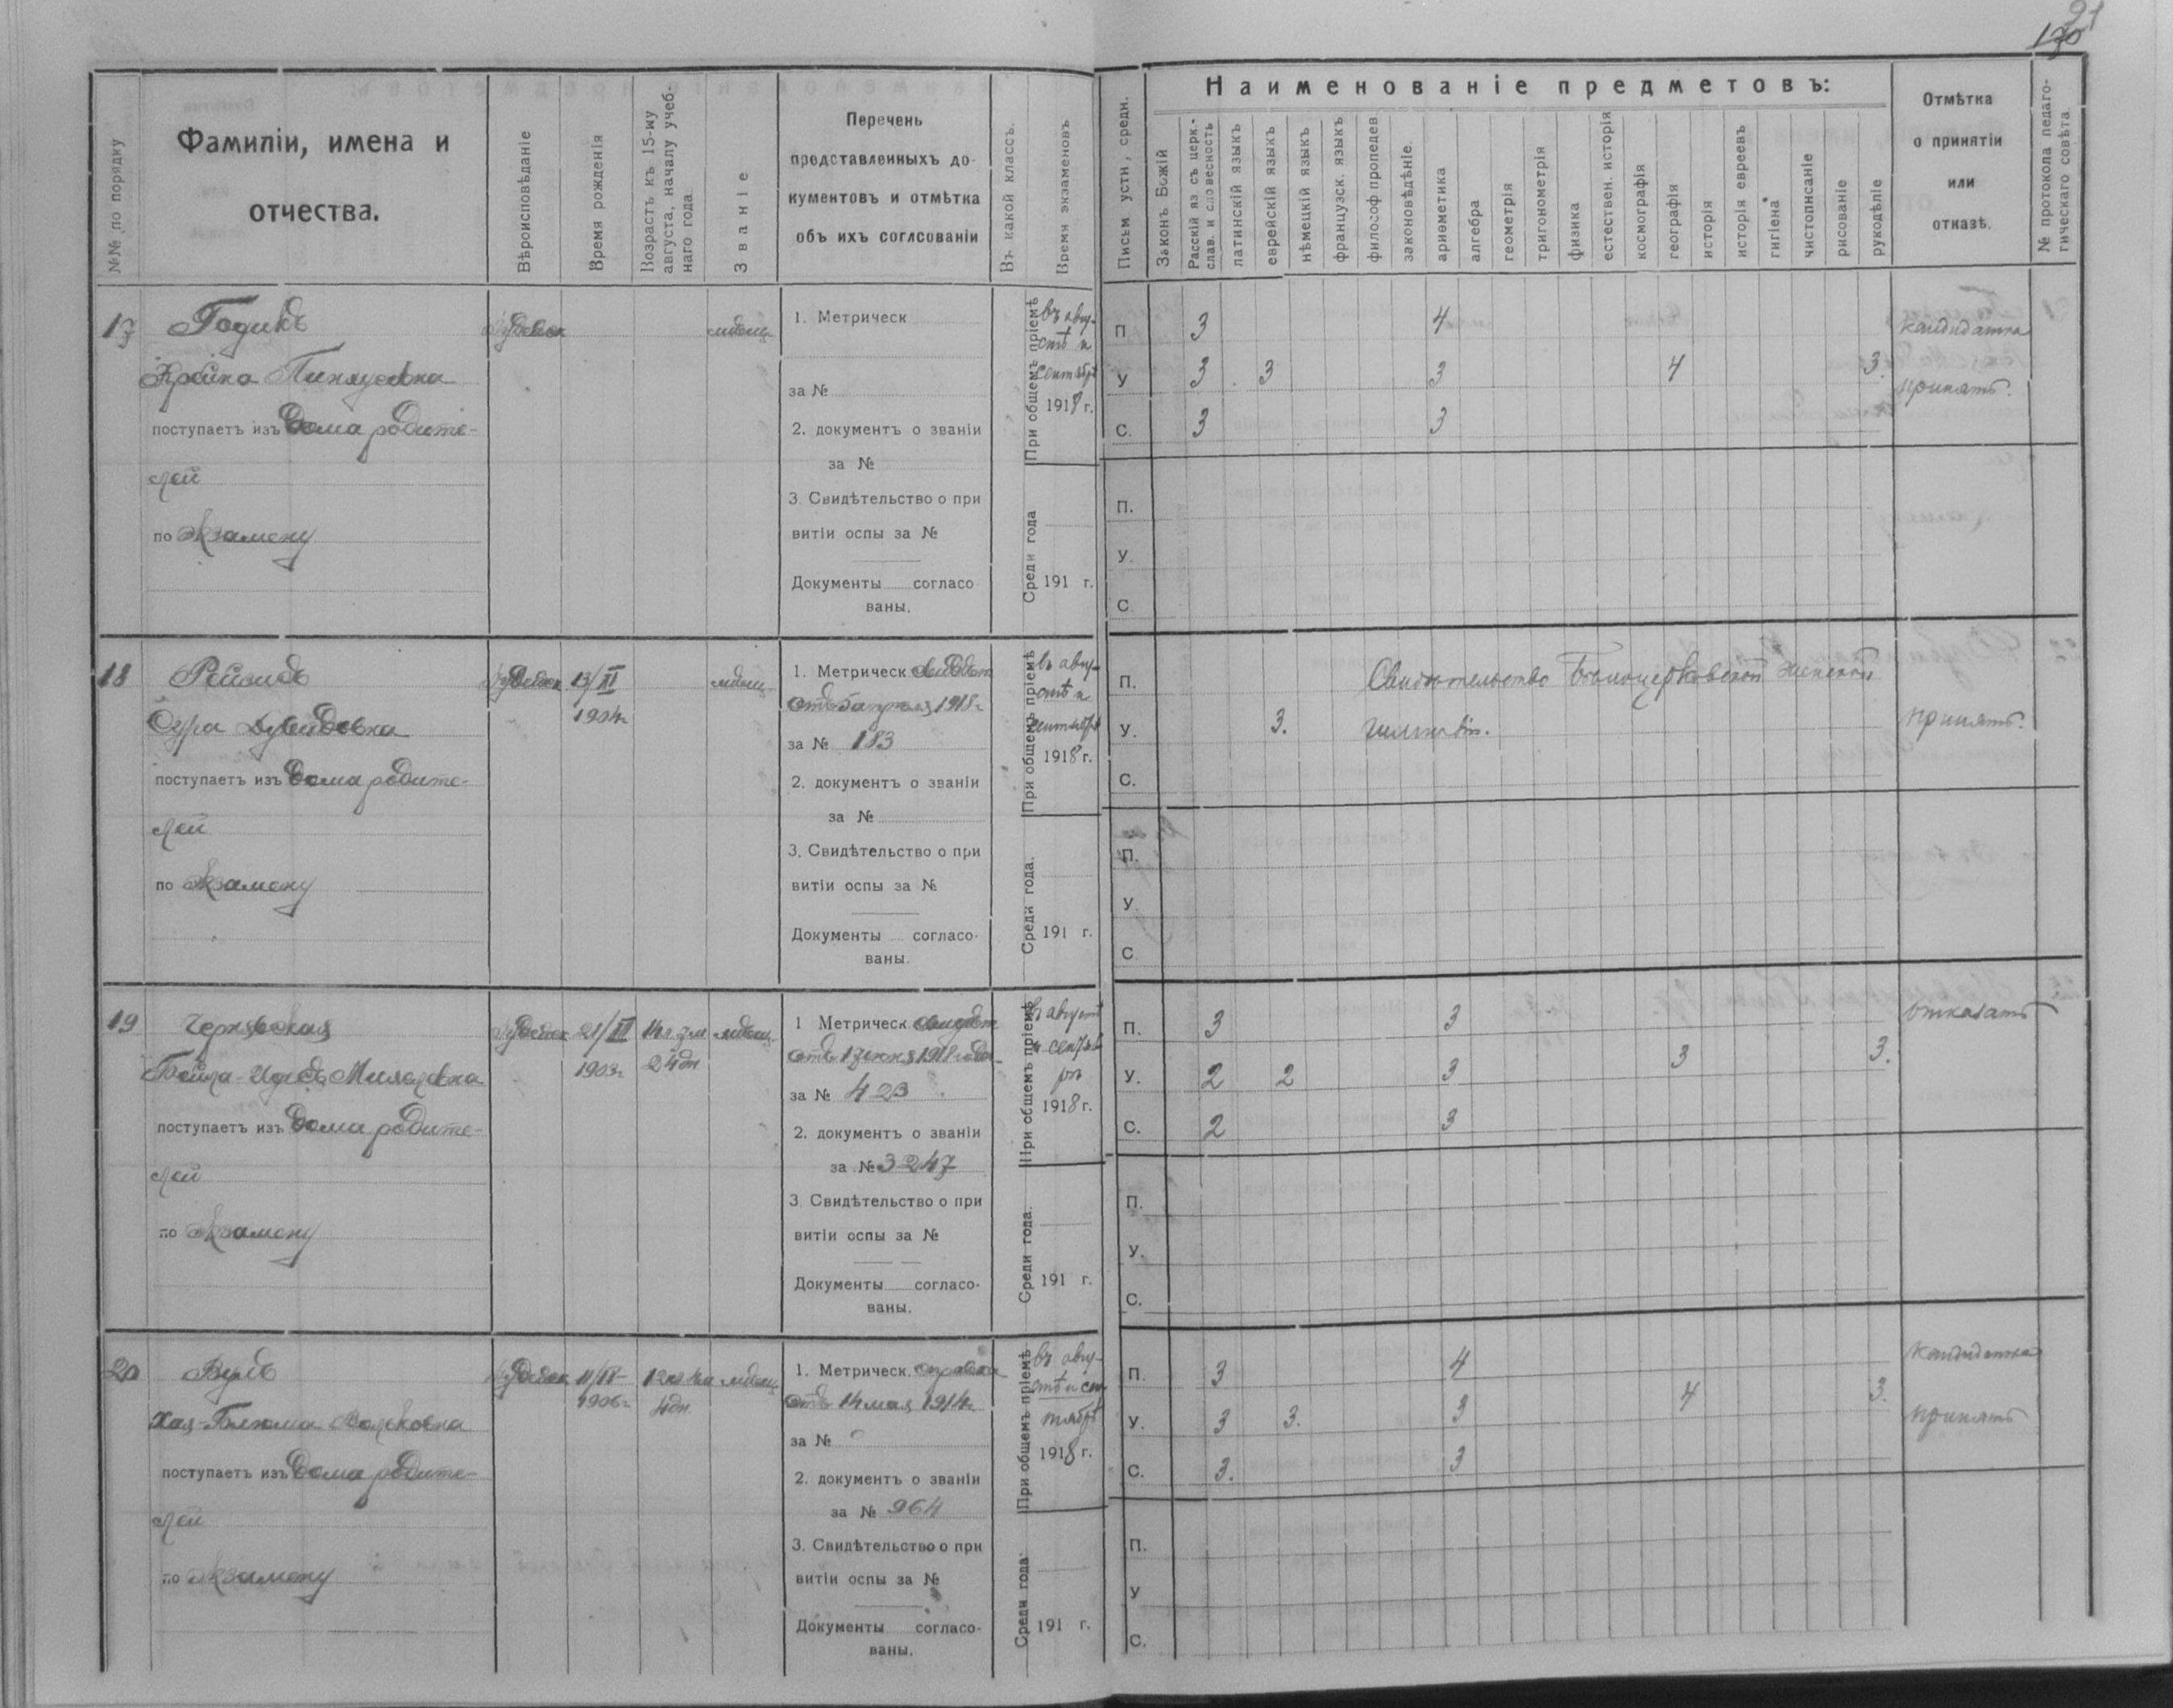 91
170
№№ по порядку
Фамиліи, имена и
отчества.
Вѣроисповѣданіе
Время рожденія
Возрастъ къ 15-му
августа, началу учеб-
наго года.
Званіе
Перечень
представленныхъ до-
кументовъ и отмѣтка
объ ихъ согласованіи
Въ какой классъ.
Время экзаменовъ
Письм устн, средн.
Наименованіе предметовъ:
Законъ Божій
Русскій яз съ церк.-
слав. и словесность
латинскій языкъ
еврейскій языкъ
нѣмецкій языкъ
французск. языкъ
философ пропедев
законовѣдѣніе.
ариѳметика
алгебра
геометрія
тригонометрія
физика
естествен. исторія
космографія
географія
исторія
исторія евреевъ
гигіена
чистописаніе
рисованіе
рукодѣліе
Отмѣтка
о принятіи
или
отказѣ.
№ протокола педаго-
гическаго совѣта.
17
Годикъ
поступаетъ изъ дома родите-
лей
по экзамену
іудейск
мѣщ.
1. Метрическ
за №
2. документъ о званіи
за №
3. Свидѣтельство о при
витіи оспы за №
Документы согласо
ваны.
При общемъ пріемѣ
въ авгу-
стѣ и
сентябрѣ
1918 г.
Среди года
191 г.
П 3 4
У 3 3 3 4 3.
С. 3 3
кандидатка
принять.
П.
У.
С
18
Рейзисъ
Сура Дувидовна
поступаетъ изъ дома родите-
лей
по экзамену
іудейск
13/XI
1904г.
мѣщ.
1. Метрическ свидѣт
отъ 5 апрѣля 1918 г.
за № 183
2. документъ о званіи
за №
3. Свидѣтельство о при
витіи оспы за №
Документы согласо-
ваны.
При общемъ пріемѣ
въ авгу-
стѣ и
сентябрѣ
1918 г.
Среди года.
191 г.
П. Свидѣтельство Бѣлоцерковской женской
У. 3. гимназіи.
С.
принять.
П.
У.
С
19
Чернявская
поступаетъ изъ дома родите-
лей
по экзамену
іудейск
1903г.
14л 7м
24дн
мѣщ.
1 Метрическ. свидѣт
1918 года
за № 423
2. документъ о званіи
за № 3247
3. Свидѣтельство о при
витіи оспы за №
Документы согласо-
ваны.
При общемъ пріемѣ
въ августѣ
и сентяб
рѣ
1918 г.
Среди года.
191 г.
П. 3 3
У. 2 2 3 3 3.
С. 2 3
отказать
П.
У.
С.
20
Хая-Блюма Волковна
поступаетъ изъ дома родите-
лей
по экзамену
іудейск
1906г.
4дн
мѣщ.
1. Метрическ. справка
отъ 14 мая 1914г.
за №
2. документъ о званіи
за № 964
3. Свидѣтельство о при
витіи оспы за №
Документы согласо-
ваны.
При общемъ пріемѣ
въ авгу-
стѣ и сен-
тябрѣ
1918 г.
Среди года.
191 г.
П. 3 4
У. 3 3. 3 4 3.
С. 3. 3
кандидатка
принять
П.
У
С.